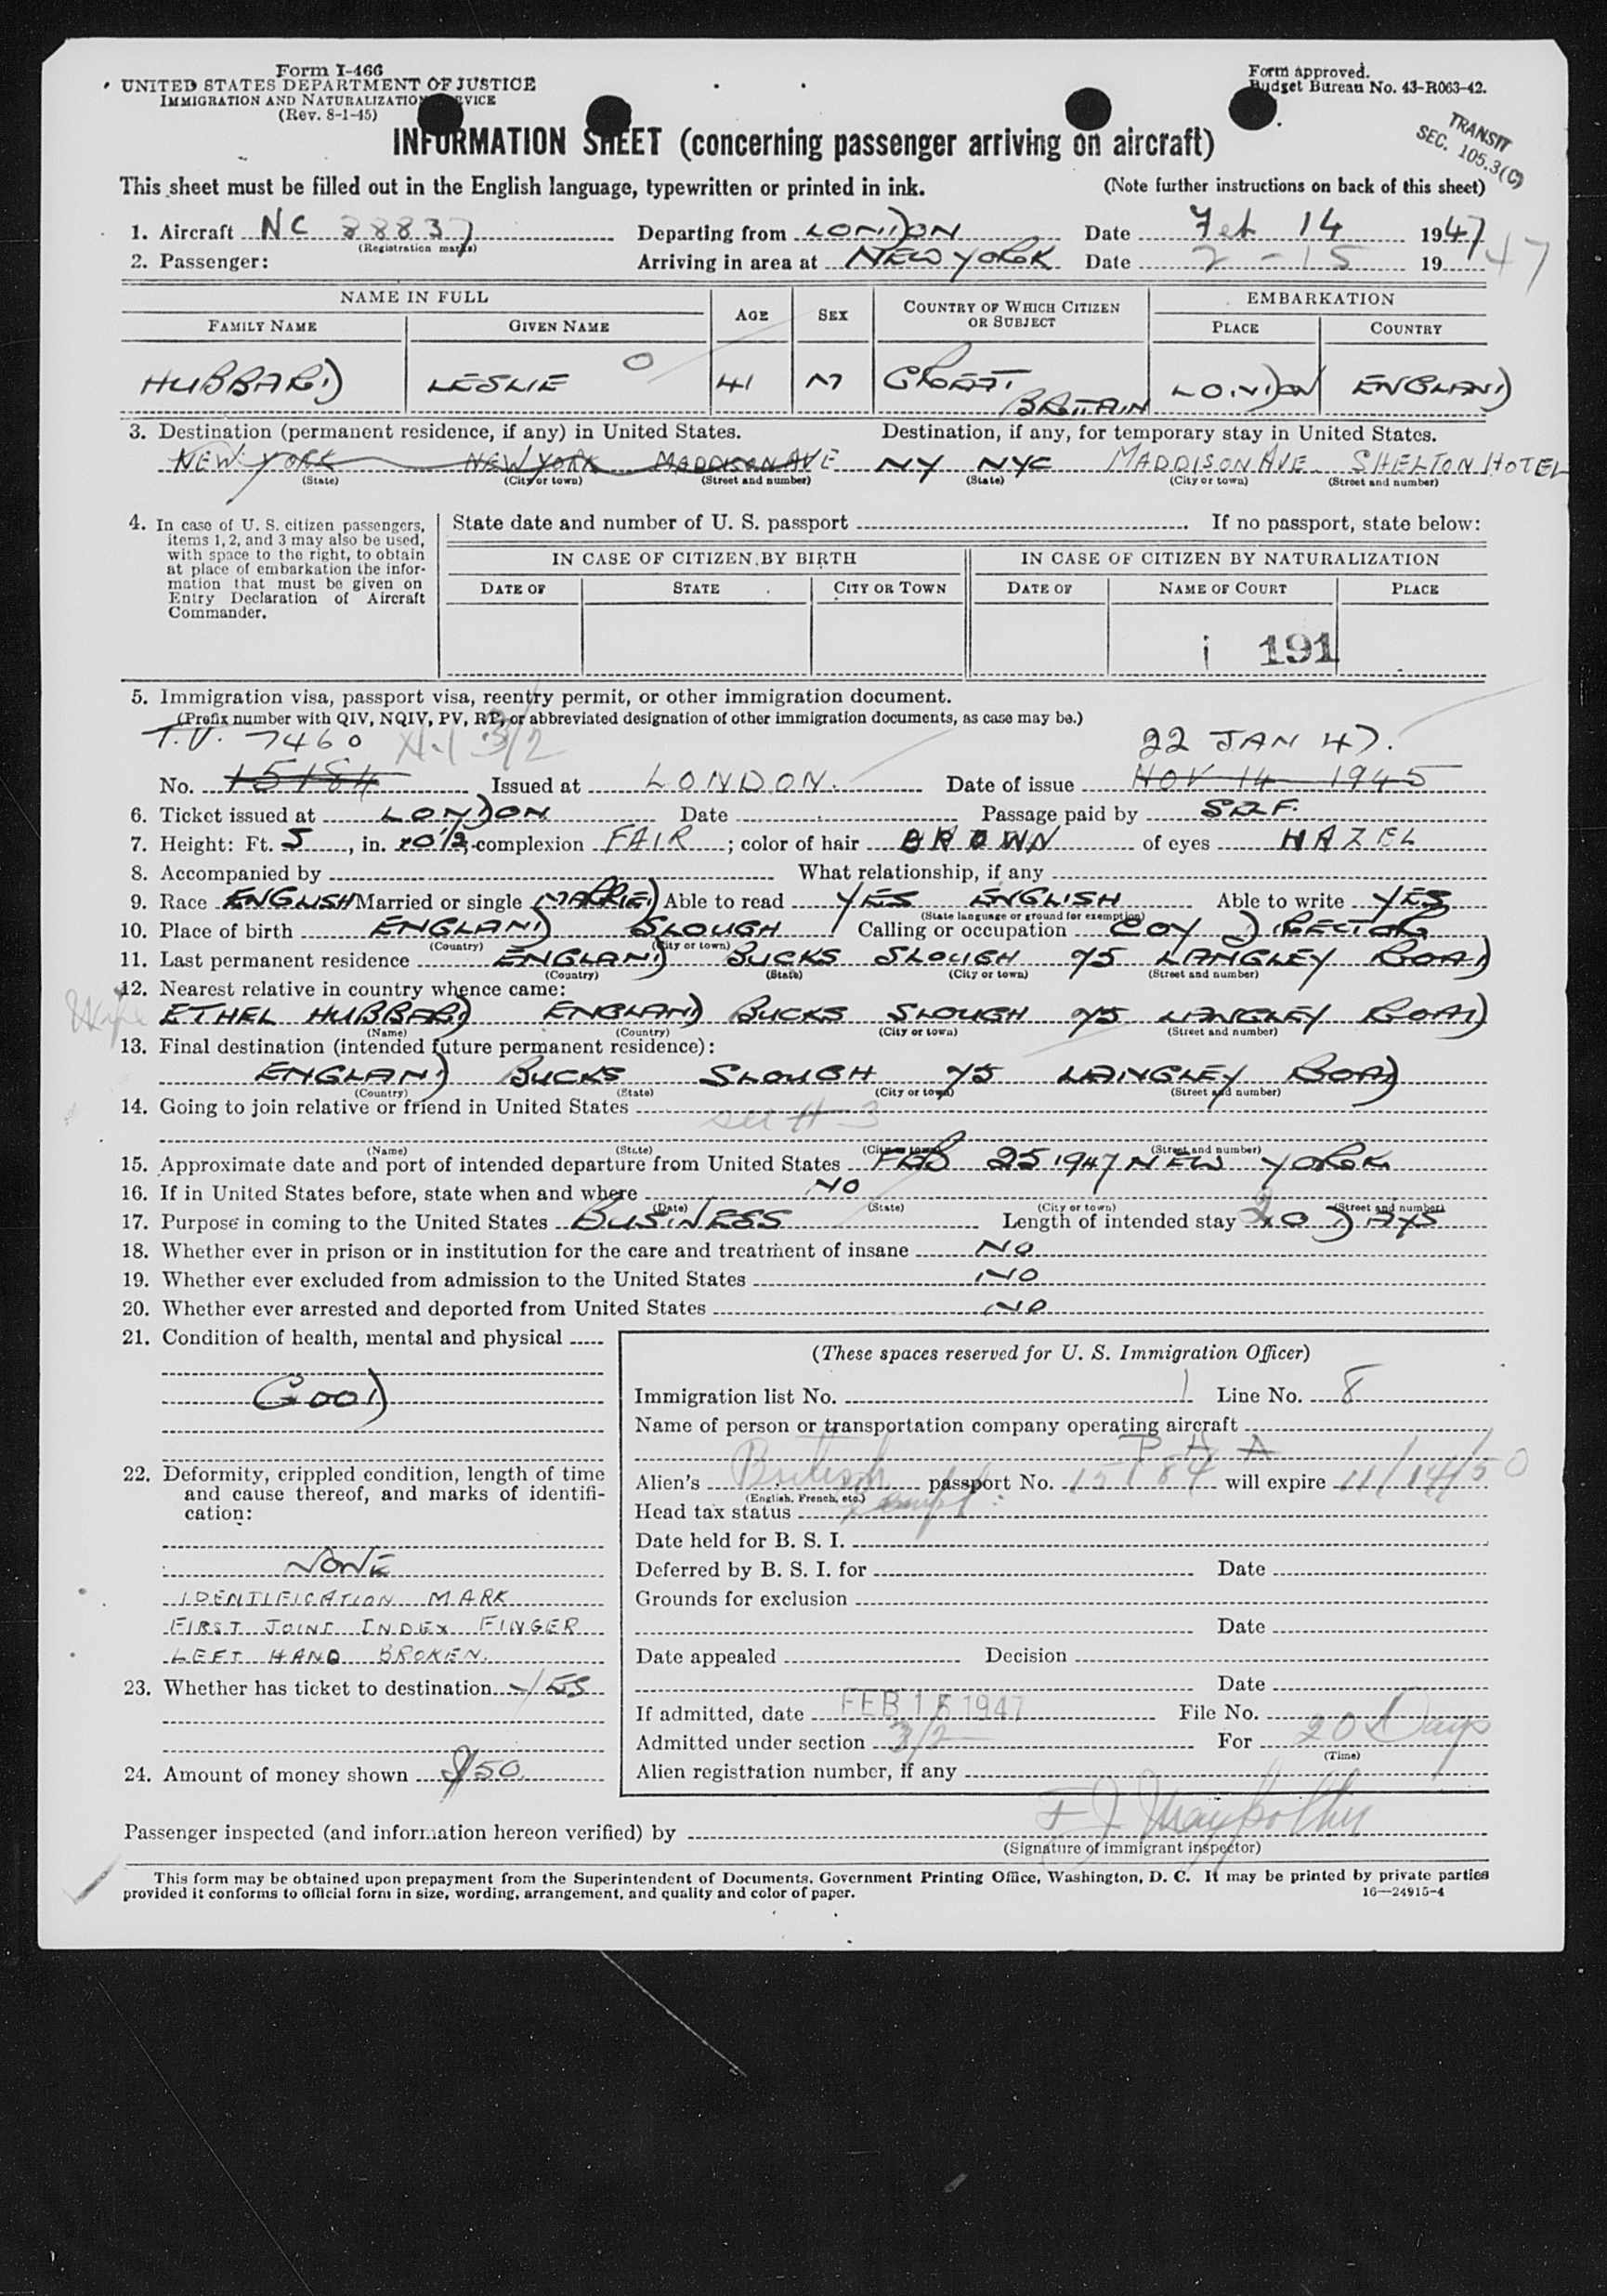 Form I-466
UNITED STATES DEPARTMENT OF JUSTICE
IMMIGRATION AND NATURALIZATION SERVICE
(Rev. 8-1-45)
Form approved.
Budget Bureau No. 43-R063-42.
TRANSIT
SEC. 105.3(C)
INFORMATION SHEET (concerning passenger arriving on aircraft)
This sheet must be filled out in the English language, typewritten or printed in ink. (Note further instructions on back of this sheet)
1. Aircraft NC 88837 Departing from LONDON Date Feb 14 1947
(Registration marks)
2. Passenger: Arriving in area at NEW YORK Date 2-15 19 47
NAME IN FULL AGE SEX COUNTRY OF WHICH CITIZEN OR SUBJECT EMBARKATION
FAMILY NAME GIVEN NAME PLACE COUNTRY
HUBBARD LESLIE O 41 M GREAT BRITAIN LONDON ENGLAND
3. Destination (permanent residence, if any) in United States. Destination, if any, for temporary stay in United States.
NEW YORK NEW YORK MADDISON AVE NY NYC MADDISON AVE SHELTON HOTEL
(State) (City or town) (Street and number) (State) (City or town) (Street and number)
4. In case of U. S. citizen passengers, items 1, 2, and 3 may also be used, with space to the right, to obtain at place of embarkation the information that must be given on Entry Declaration of Aircraft Commander.
State date and number of U. S. passport If no passport, state below:
IN CASE OF CITIZEN BY BIRTH IN CASE OF CITIZEN BY NATURALIZATION
DATE OF STATE CITY OR TOWN DATE OF NAME OF COURT PLACE
i 191
5. Immigration visa, passport visa, reentry permit, or other immigration document.
(Prefix number with QIV, NQIV, PV, RP, or abbreviated designation of other immigration documents, as case may be.)
T.V. 7460 3/2 22 JAN 47.
No. 15184 Issued at LONDON. Date of issue NOV 14 1945
6. Ticket issued at LONDON Date Passage paid by SELF.
7. Height: Ft. 5, in. 10 1/2; complexion FAIR; color of hair BROWN of eyes HAZEL
8. Accompanied by What relationship, if any
9. Race ENGLISH Married or single MARRIED Able to read YES ENGLISH Able to write YES
(State language or ground for exemption)
10. Place of birth ENGLAND SLOUGH Calling or occupation COY DIRECTOR
(Country) (City or town)
11. Last permanent residence ENGLAND BUCKS SLOUGH 75 LANGLEY ROAD
(Country) (State) (City or town) (Street and number)
12. Nearest relative in country whence came:
Wife ETHEL HUBBARD ENGLAND BUCKS SLOUGH 75 LANGLEY ROAD
(Name) (Country) (City or town) (Street and number)
13. Final destination (intended future permanent residence):
ENGLAND BUCKS SLOUGH 75 LANGLEY ROAD
(Country) (State) (City or town) (Street and number)
14. Going to join relative or friend in United States see # 3
(Name) (State) (City or town) (Street and number)
15. Approximate date and port of intended departure from United States FEB 25 1947 NEW YORK
16. If in United States before, state when and where NO
(Date) (State) (City or town) (Street and number)
17. Purpose in coming to the United States BUSINESS Length of intended stay 20 DAYS
18. Whether ever in prison or in institution for the care and treatment of insane NO
19. Whether ever excluded from admission to the United States NO
20. Whether ever arrested and deported from United States NO
21. Condition of health, mental and physical
GOOD
22. Deformity, crippled condition, length of time and cause thereof, and marks of identification:
NONE
IDENTIFICATION MARK
FIRST JOINT INDEX FINGER
LEFT HAND BROKEN.
23. Whether has ticket to destination YES
24. Amount of money shown $50
(These spaces reserved for U. S. Immigration Officer)
Immigration list No. 1 Line No. 8
Name of person or transportation company operating aircraft
P A A
Alien's British passport No. 15184 will expire 11/14/50
(English, French, etc.)
Head tax status Exempt
Date held for B. S. I.
Deferred by B. S. I. for Date
Grounds for exclusion
Date
Date appealed Decision
Date
If admitted, date FEB 15 1947 File No.
Admitted under section 3/2 For 20 Days
(Time)
Alien registration number, if any
Passenger inspected (and information hereon verified) by
(Signature of immigrant inspector)
This form may be obtained upon prepayment from the Superintendent of Documents, Government Printing Office, Washington, D. C. It may be printed by private parties
provided it conforms to official form in size, wording, arrangement, and quality and color of paper. 16—24915-4